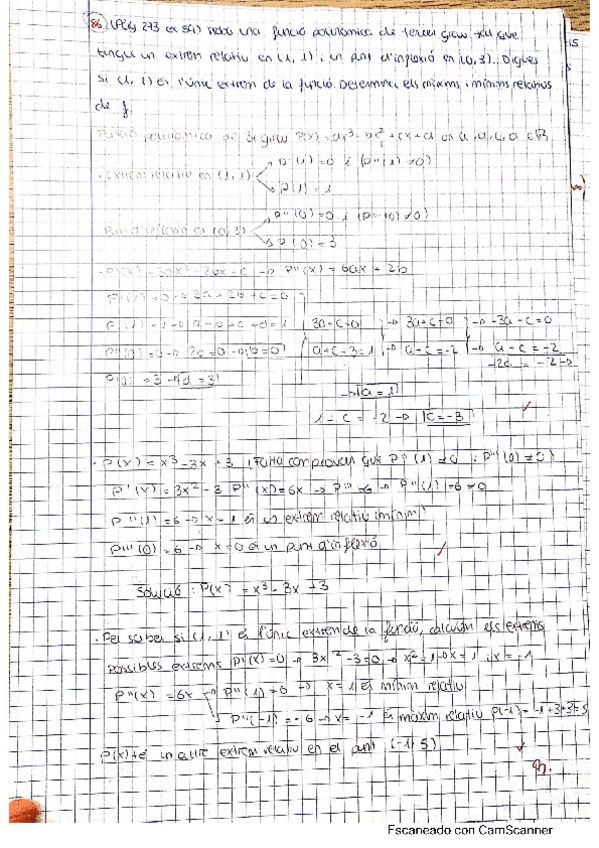 86 (Pàg 273 ex 54) Trobo una funció polinòmica de tercer grau tal que
tingui un extrem relatiu en (1, 1) i un punt d'inflexió en (0, 3). Digues
si (1, 1) és l'únic extrem de la funció. Determina els màxims i mínims relatius
de f.
Funció polinòmica de 3r grau P(x) = ax³ + bx² + cx + d
P'(1) = 0 i (P''(1) ≠ 0)
· Extrem relatiu en (1, 1)
P(1) = 1
P''(0) = 0 i (P'''(0) ≠ 0)
Punt d'inflexió en (0, 3)
P(0) = 3
· P'(x) = 3ax² + 2bx + c → P''(x) = 6ax + 2b
P'(1) = 0 → 3a + 2b + c = 0
P(1) = 1 → a + b + c + d = 1 3a + c = 0 → 3a + c = 0 → -3a - c = 0
P''(0) = 0 → 2b = 0 → b = 0 a + c + 3 = 1 → a + c = -2 → a + c = -2
P(0) = 3 → d = 3 -2a = -2 →
→ a = 1
1 + c = -2 → c = -3
· P(x) = x³ - 3x + 3 (Falta comprovar que P''(1) ≠ 0 i P'''(0) ≠ 0)
P'(x) = 3x² - 3 P''(x) = 6x → P''' = 6 → P''(1) = 6 ≠ 0
P''(1) = 6 → x = 1 és un extrem relatiu (mínim)
P'''(0) = 6 → x = 0 és un punt d'inflexió
Solució: P(x) = x³ - 3x + 3
· Per saber si (1, 1) és l'únic extrem de la funció, calculem els extrems
Possibles extrems P'(x) = 0 → 3x² - 3 = 0 → x² = 1 → x = 1 i x = -1
P''(x) = 6x → P''(1) = 0 → x = 1 és mínim relatiu
P''(-1) = -6 → x = -1 és màxim relatiu P(-1) = -1 + 3 + 3 = 5
P(x) té un altre extrem relatiu en el punt (-1, 5)
Escaneado con CamScanner